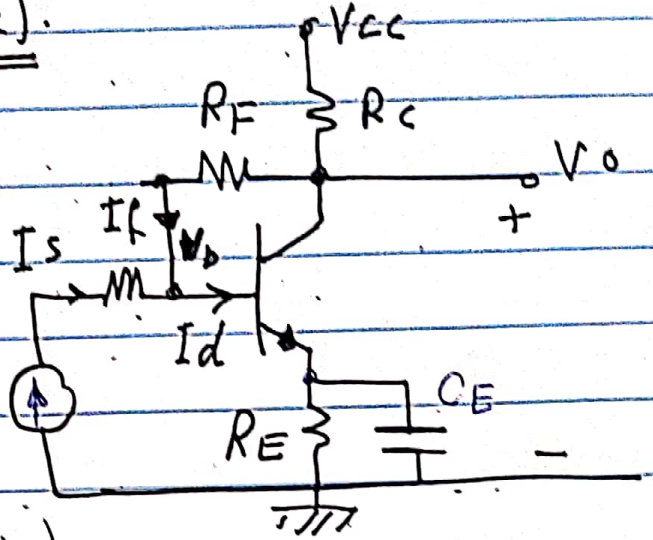 ).
Vcc
RF
Rc
Vo
+
If
Is
Vb
Id
CE
RE
-
)